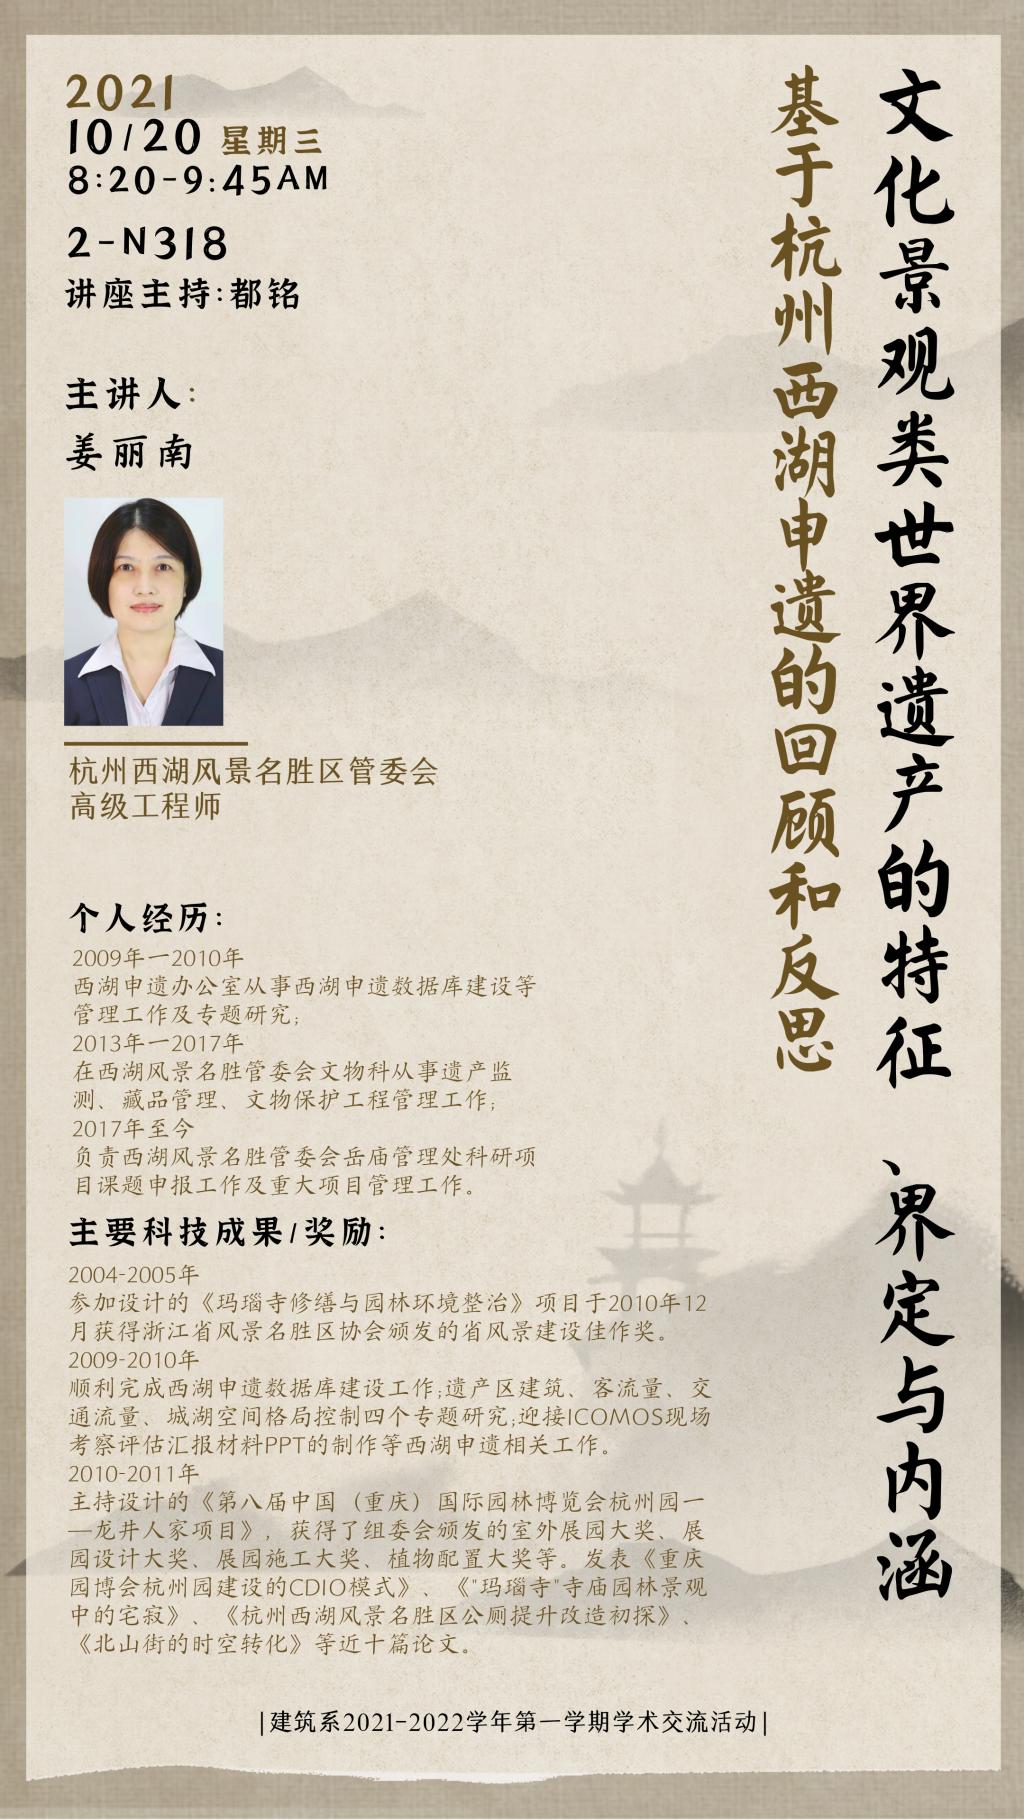 文化景观类世界遗产的特征、界定与内涵
基于杭州西湖申遗的回顾和反思
2021
10/20 星期三
8:20-9:45AM
2-N318
讲座主持:都铭
主讲人:
姜丽南
杭州西湖风景名胜区管委会
高级工程师
个人经历:
2009年一2010年
西湖申遗办公室从事西湖申遗数据库建设等
管理工作及专题研究;
2013年一2017年
在西湖风景名胜管委会文物科从事遗产监
测、藏品管理、文物保护工程管理工作;
2017年至今
负责西湖风景名胜管委会岳庙管理处科研项
目课题申报工作及重大项目管理工作。
主要科技成果/奖励:
2004-2005年
参加设计的《玛瑙寺修缮与园林环境整治》项目于2010年12
月获得浙江省风景名胜区协会颁发的省风景建设佳作奖。
2009-2010年
顺利完成西湖申遗数据库建设工作;遗产区建筑、客流量、交
通流量、城湖空间格局控制四个专题研究;迎接ICOMOS现场
考察评估汇报材料PPT的制作等西湖申遗相关工作。
2010-2011年
主持设计的《第八届中国（重庆）国际园林博览会杭州园一
—龙井人家项目》，获得了组委会颁发的室外展园大奖、展
园设计大奖、展园施工大奖、植物配置大奖等。发表《重庆
园博会杭州园建设的CDIO模式》、《"玛瑙寺"寺庙园林景观
中的宅寂》、《杭州西湖风景名胜区公厕提升改造初探》、
《北山街的时空转化》等近十篇论文。
|建筑系2021-2022学年第一学期学术交流活动|